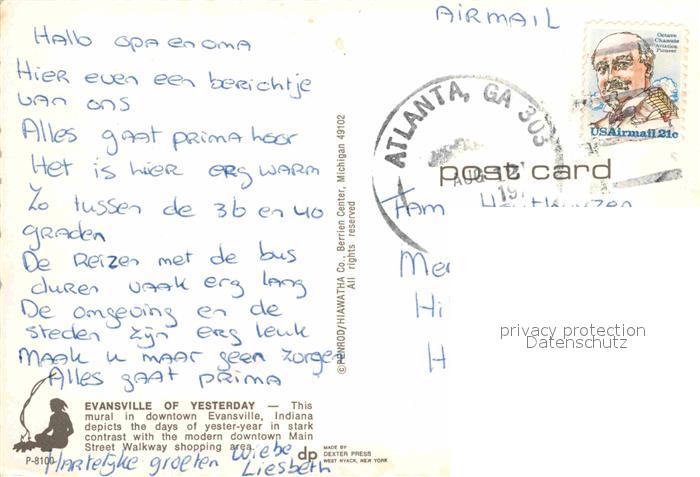 AIRMAIL
Octave
Chanute
Aviation
Pioneer
USAirmail 21c
ATLANTA, GA 303
AUG 12
197
post card
Hallo opa en oma
Hier even een berichtje
van ons
Alles gaat prima hoor
Het is hier erg warm
Zo tussen de 36 en 40
graden
De Reizen met de bus
duren vaak erg lang
De omgeving en de
steden zijn erg leuk
Maak u maar geen zorgen
Alles gaat prima
Hartelijke groeten Wiebe
Liesbeth
Fam
Me
Hi
H
privacy protection
Datenschutz
© PENROD/HIAWATHA Co., Berrien Center, Michigan 49102
All rights reserved
EVANSVILLE OF YESTERDAY — This
mural in downtown Evansville, Indiana
depicts the days of yester-year in stark
contrast with the modern downtown Main
Street Walkway shopping area.
P-8100
dp
MADE BY
DEXTER PRESS
WEST NYACK, NEW YORK